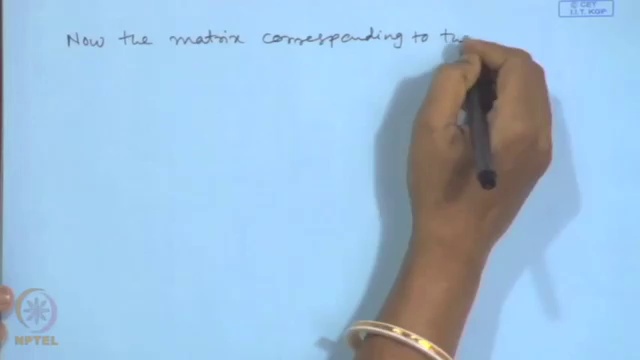 © CET
I.I.T. KGP
Now the matrix corresponding to the
NPTEL